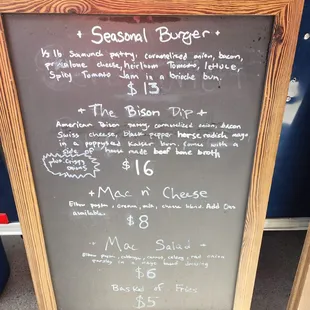 Seasonal Burger
½ lb patty, caramelized onion, bacon,
provalone cheese, heirloom Tomato, lettuce,
Spicy Tomato Jam in a brioche bun.
$13
The Bison Dip
American Bison patty, caramelized onion, bacon
Swiss cheese, black pepper horseradish mayo
in a poppyseed Kaiser bun. Comes with a
side of house made beef bone broth
add crispy onions
$16
Mac n' Cheese
Elbow pasta, cream, milk, cheese blend. Add Ons
available.
$8
Mac Salad
Elbow pasta, cabbage, celery, red onion
parsley in a mayo based dressing
$6
Basket of Fries
$5